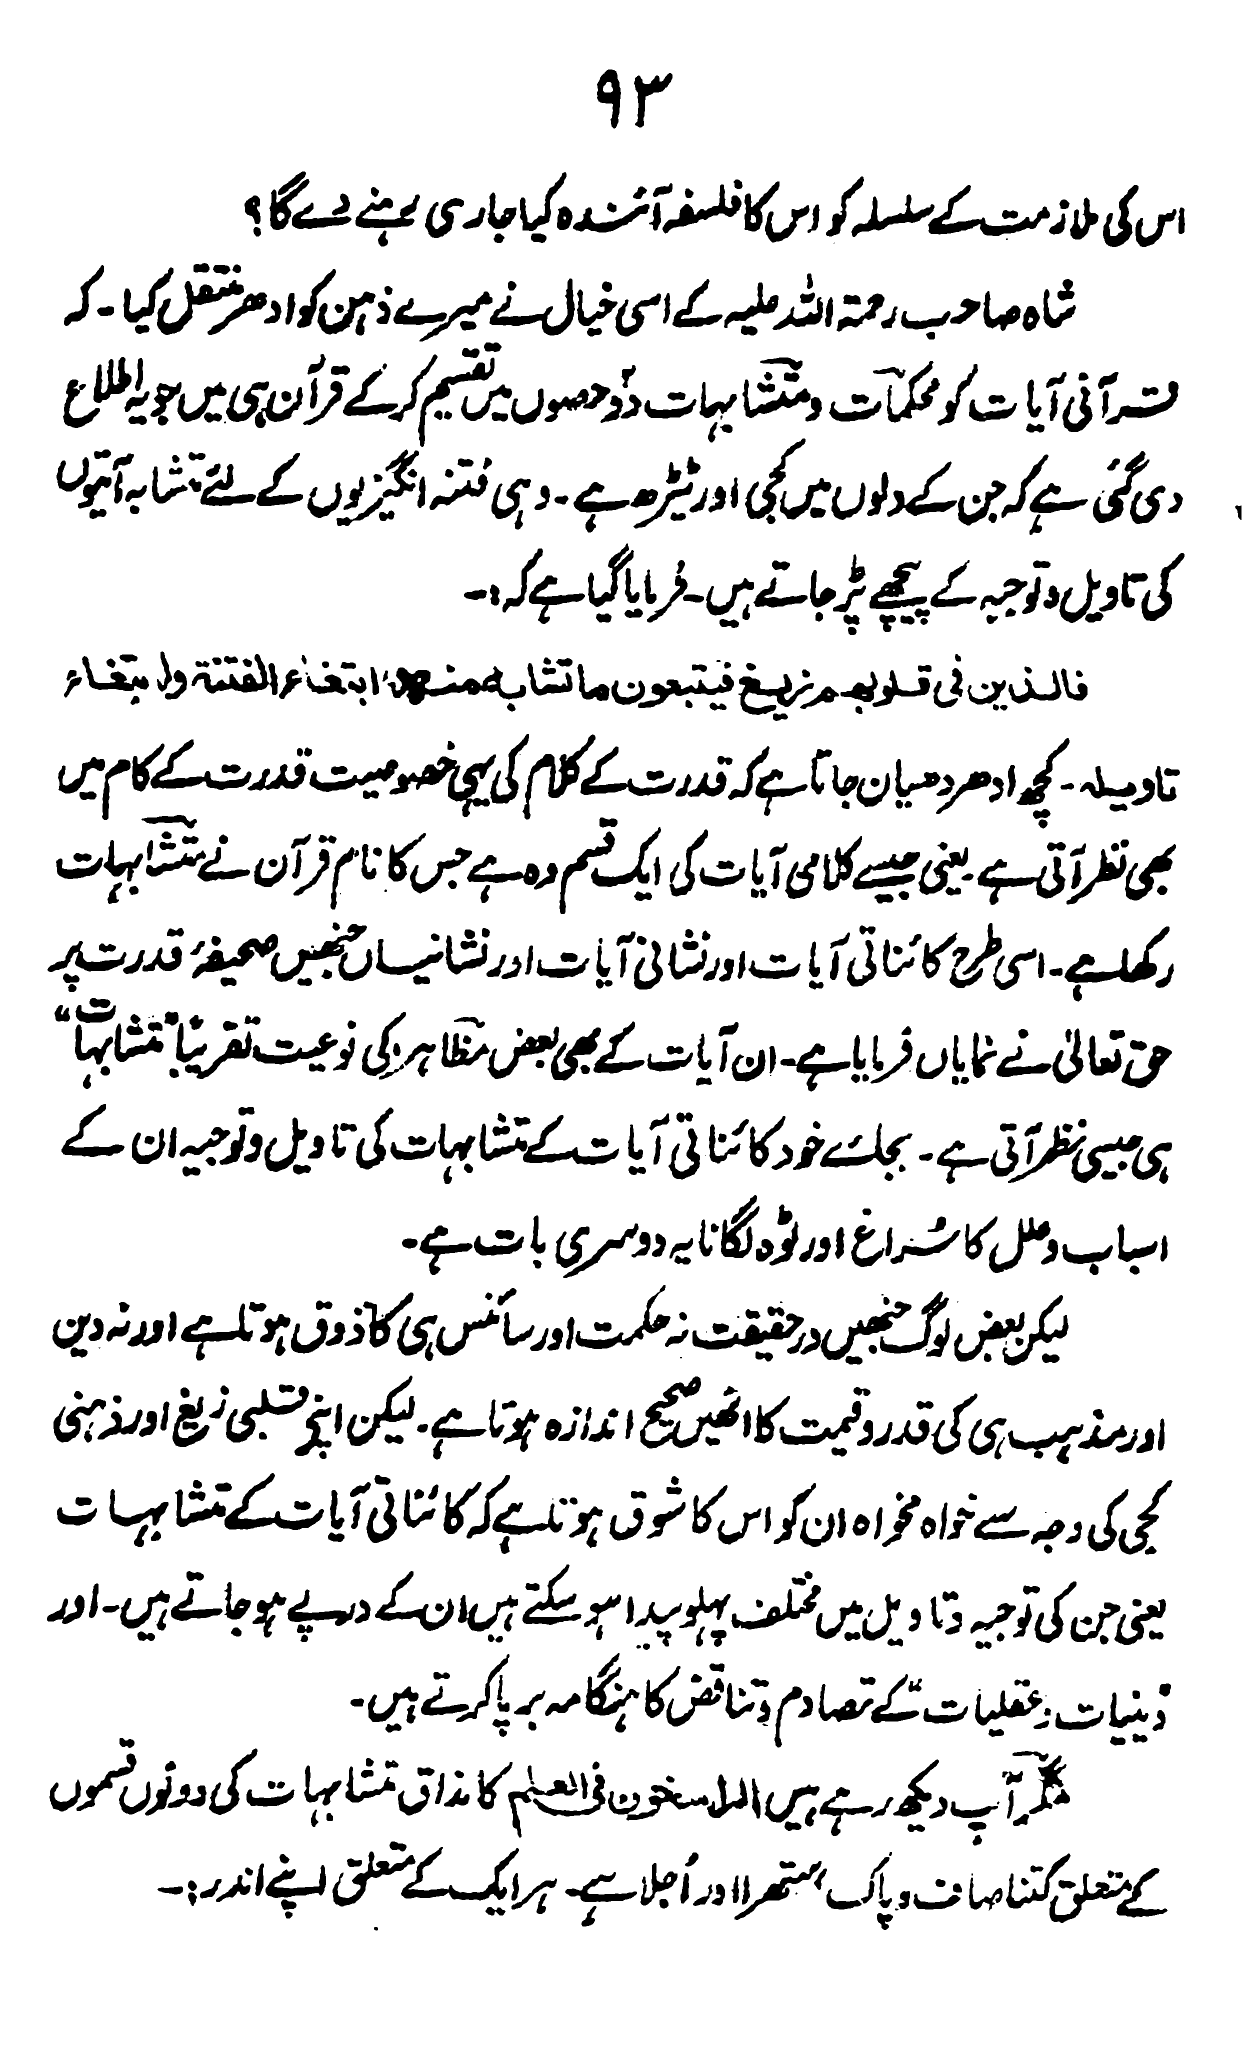 ۹۳
اس کی ملازمت کے سلسلہ کو اس کا فلسفہ آئندہ کیا جاری رہنے دے گا؟
شاہ صاحب رحمۃ اللہ علیہ کے اسی خیال نے میرے ذہن کو ادھر منتقل کیا۔ کہ
قرآنی آیات کو محکمات و متشابہات دو حصوں میں تقسیم کر کے قرآن ہی میں جو یہ اطلاع
دی گئی ہے کہ جن کے دلوں میں کجی اور ٹیڑھ ہے۔ وہی فتنہ انگیزیوں کے لئے متشابہ آیتوں
کی تاویل و توجیہ کے پیچھے پڑ جاتے ہیں۔ فرمایا گیا ہے کہ:۔
فالذین فی قلوبھم زیغ فیتبعون ما تشابہ منہ ابتغاء الفتنۃ وابتغاء
تاویلہ۔ کچھ ادھر دھیان جاتا ہے کہ قدرت کے کلام کی یہی خصوصیت قدرت کے کام میں
بھی نظر آتی ہے۔ یعنی جیسے کلامی آیات کی ایک قسم وہ ہے جس کا نام قرآن نے متشابہات
رکھا ہے۔ اسی طرح کائناتی آیات اور نشانی آیات اور نشانیاں جنھیں صحیفۂ قدرت پر
حق تعالیٰ نے نمایاں فرمایا ہے۔ ان آیات کے بھی بعض مظاہر کی نوعیت تقریباً "متشابہات"
ہی جیسی نظر آتی ہے۔ بجائے خود کائناتی آیات کے متشابہات کی تاویل و توجیہ ان کے
اسباب و علل کا سُراغ اور ٹوہ لگانا یہ دوسری بات ہے۔
لیکن بعض لوگ جنھیں در حقیقت نہ حکمت اور سائنس ہی کا ذوق ہوتا ہے اور نہ دین
اور مذہب ہی کی قدر و قیمت کا انھیں صحیح اندازہ ہوتا ہے۔ لیکن اپنے قلبی زیغ اور ذہنی
کجی کی وجہ سے خواہ مخواہ ان کو اس کا شوق ہوتا ہے کہ کائناتی آیات کے متشابہات
یعنی جن کی توجیہ و تاویل میں مختلف پہلو پیدا ہو سکتے ہیں ان کے درپے ہو جاتے ہیں۔ اور
"دینیات و عقلیات" کے تصادم و تناقض کا ہنگامہ برپا کرتے ہیں۔
مگر آپ دیکھ رہے ہیں الراسخون فی العلم کا مذاق متشابہات کی دونوں قسموں
کے متعلق کتنا صاف و پاک، ستھرا اور اُجلا ہے۔ ہر ایک کے متعلق اپنے اندر:۔